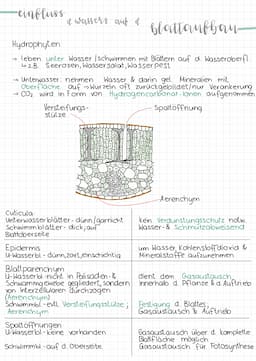 einfluss d. wassers auf d.
blattaufbau
Hydrophyten
→ leben unter Wasser / schwimmen mit Blättern auf d. Wasseroberfl.
↳ z.B. Seerosen, Wassersalat, Wasserpest
→ Unterwasser: nehmen Wasser & darin gel. Mineralien mit
Oberfläche auf → Wurzeln oft zurückgebildet / nur Verankerung
→ CO₂ wird in Form von Hydrogencarbonat-Ionen aufgenommen
Versteifungs-
stütze
Spaltöffnung
Aerenchym
Cuticula
Unterwasserblätter - dünn / garnicht
Schwimmblätter - dick; auf
Blattoberseite
kein Verdunstungsschutz notw.
Wasser- & Schmutzabweisend
Epidermis
U-Wasserbl. - dünn, zart, einschichtig
um Wasser, Kohlenstoffdioxid &
Mineralstoffe aufzunehmen
Blattparenchym
U-Wasserbl. - nicht in Palisaden- &
Schwammgewebe gegliedert, sondern
von Interzellularen durchzogen
(Aerenchym)
Schwimmbl. - evtl. Versteifungsstütze;
Aerenchym
dient dem Gasaustausch
innerhalb d. Pflanze & d. Auftrieb
Festigung d. Blätter;
Gasaustausch & Auftrieb
Spaltöffnungen
U-Wasserbl. - keine vorhanden
Schwimmbl. - auf d. Oberseite
Gasaustausch über d. komplette
Blattfläche möglich
Gasaustausch für Fotosynthese